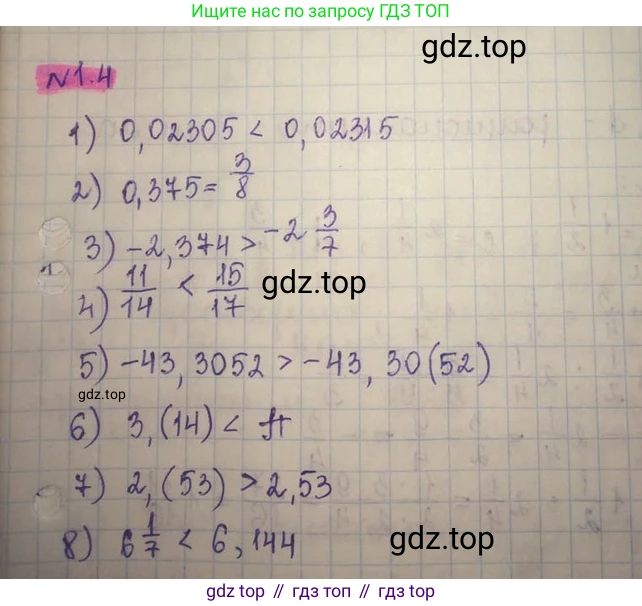 Ищите нас по запросу ГДЗ ТОП
gdz.top
N1.4
1) 0,02305 < 0,02315
2) 0,375 = 3/8
3) -2,374 > -2 3/7
4) 11/14 < 15/17
gdz.top
5) -43,3052 > -43,30(52)
gdz.top
6) 3,(14) < π
7) 2,(53) > 2,53
8) 6 1/7 < 6,144
gdz.top
gdz.top // гдз.топ // gdz.top